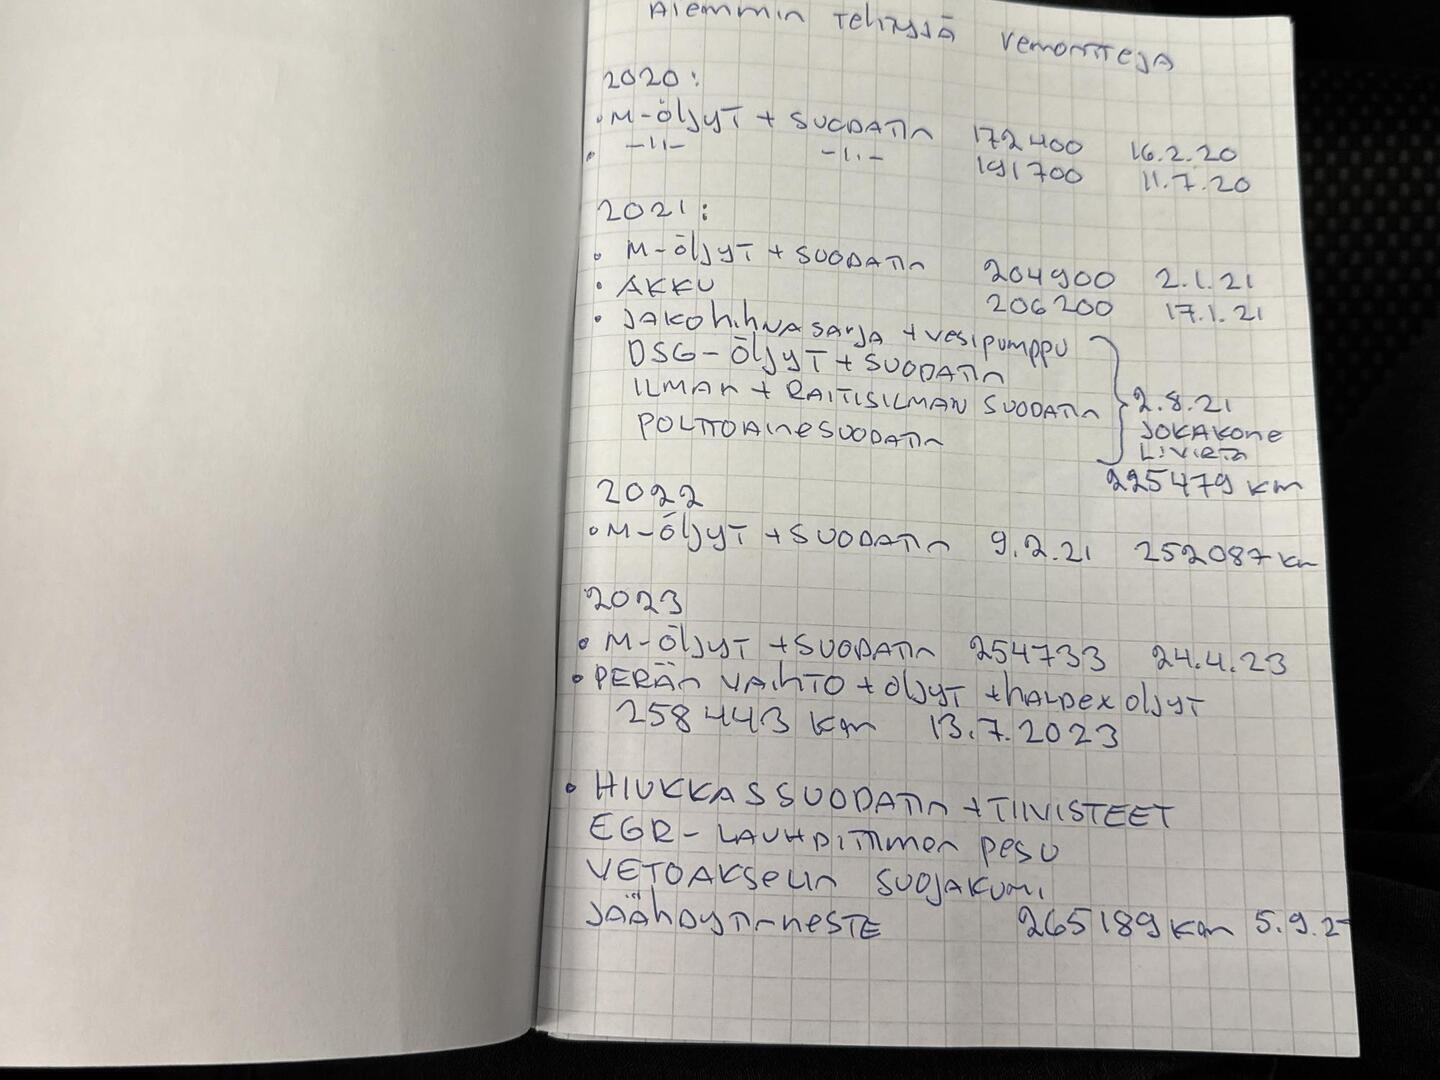 Aiemmin tehtyjä remontteja
2020:
• M-öljyt + suodatin 172400 16.2.20
• -11- -11- 191700 11.7.20
2021:
• M-öljyt + suodatin 204900 2.1.21
• AKKU 206200 17.1.21
• Jakohihnasarja + vesipumppu
DSG-öljyt + suodatin
Ilman + raitisilman suodatin 2.8.21
Polttoainesuodatin Jokakone
225479 km
2022
• M-öljyt + suodatin 9.2.21 252087 km
2023
• M-öljyt + suodatin 254733 24.4.23
• Perän vaihto + öljyt + haldex öljyt
258443 km 13.7.2023
• HIUKKASSUODATIN + TIIVISTEET
EGR-lauhduttimen pesu
Vetoakselin suojakumi
Jäähdytinneste 265189 km 5.9.2